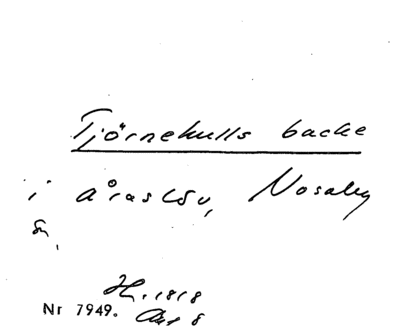 Tjörnekulls backe
i Åraslöv, Nosaby
sn,
H. 1818
Nr 7949. Akt 8